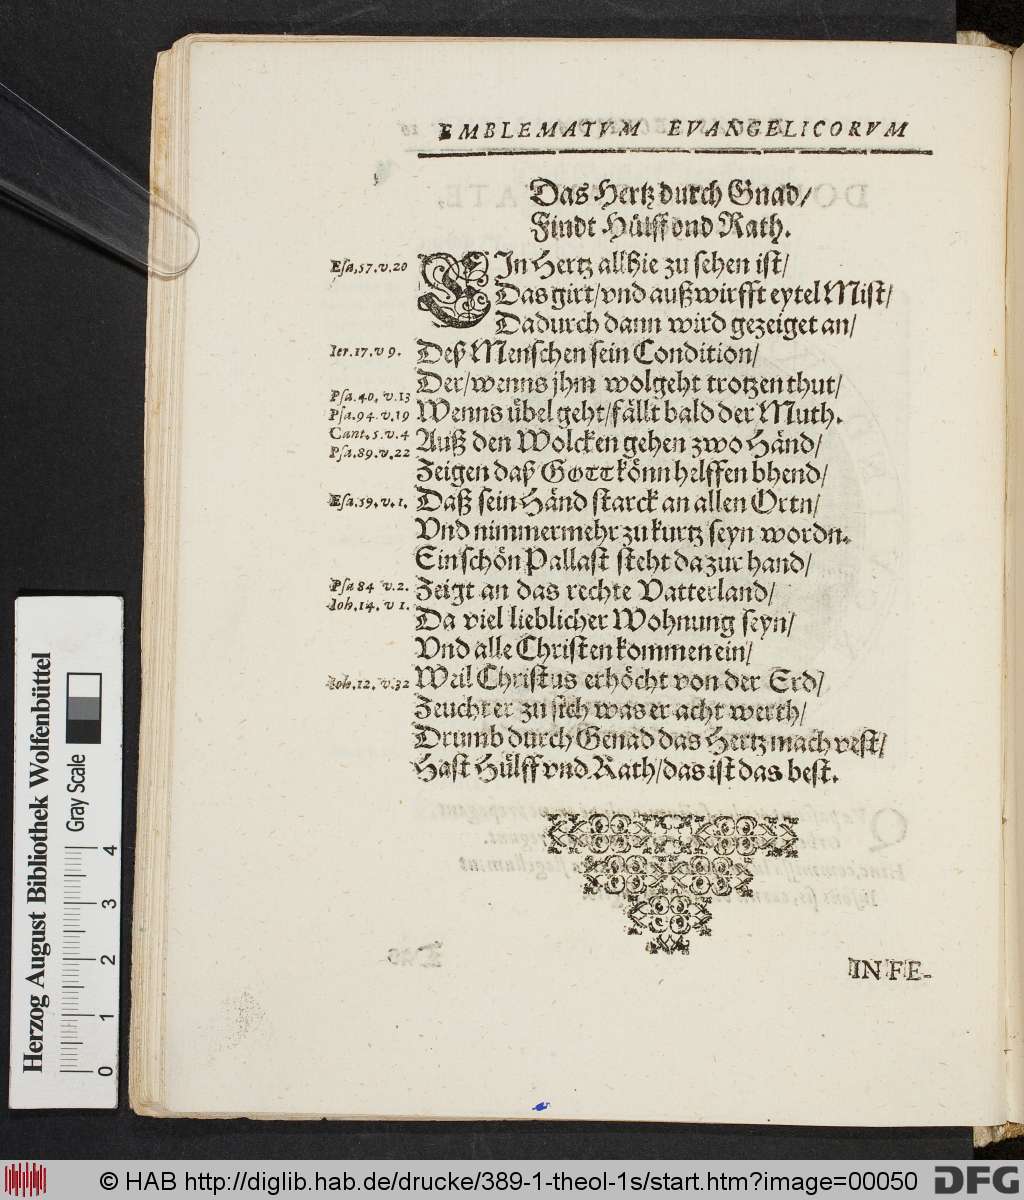 EMBLEMATVM EVANGELICORVM
Das Hertz durch Gnad/
Findt Hülff vnd Rath.
Esa.57.v.20
EIn Hertz allhie zu sehen ist/
Das girt/vnd außwirfft eytel Mist/
Dadurch dann wird gezeiget an/
Ier.17.v 9.
Deß Menschen sein Condition/
Der/wenns jhm wolgeht trotzen thut/
Psa.40. v.13
Psa.94.v.19
Wenns übel geht/fällt bald der Muth.
Cant.5.v.4
Auß den Wolcken gehen zwo Händ/
Psa.89.v.22
Zeigen daß GOTT könn helffen bhend/
Esa.59.v.1.
Daß sein Händ starck an allen Ortn/
Vnd nimmermehr zu kurtz seyn wordn.
Ein schön Pallast steht da zur hand/
Psa 84 v.2.
Zeigt an das rechte Vatterland/
Joh.14. v 1.
Da viel lieblicher Wohnung seyn/
Vnd alle Christen kommen ein/
Joh.12.v.32
Weil Christus erhöcht von der Erd/
Zeucht er zu sich was er acht werth/
Drumb durch Genad das Hertz mach vest/
Hast Hülff vnd Rath/das ist das best.
IN FE-
Herzog August Bibliothek Wolfenbüttel
Gray Scale
0 1 2 3 4
© HAB http://diglib.hab.de/drucke/389-1-theol-1s/start.htm?image=00050
DFG